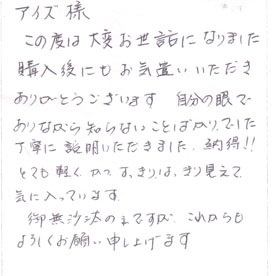 アイズ 様
この度は大変お世話になりました
購入後にもお気遣いいただき
ありがとうございます 自分の眼で
ありながら知らないことばかりでした
丁寧に説明いただきました. 納得!!
とても軽く、かつ、すっきり、はっきり見えて
気に入っています.
御無沙汰のままですが、これからも
よろしくお願い申し上げます